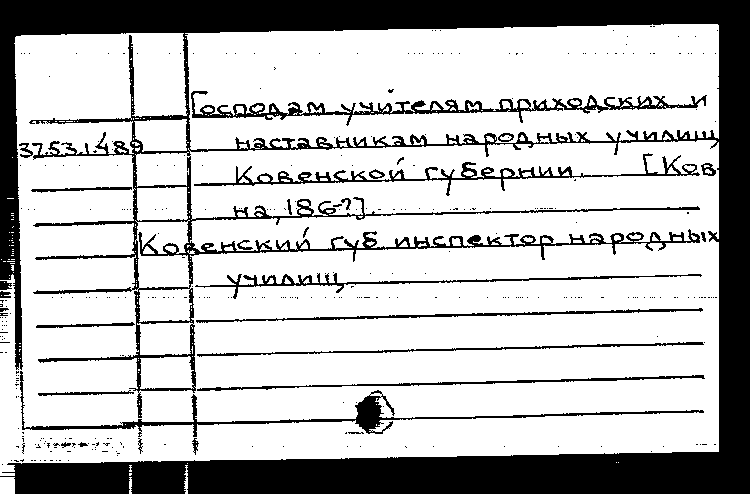 Господам учителям приходских и
37.53.1.489 наставникам народных училищ
Ковенской губернии. [Ков-
на, 186-?].
Ковенский губ инспектор народных
училищ.